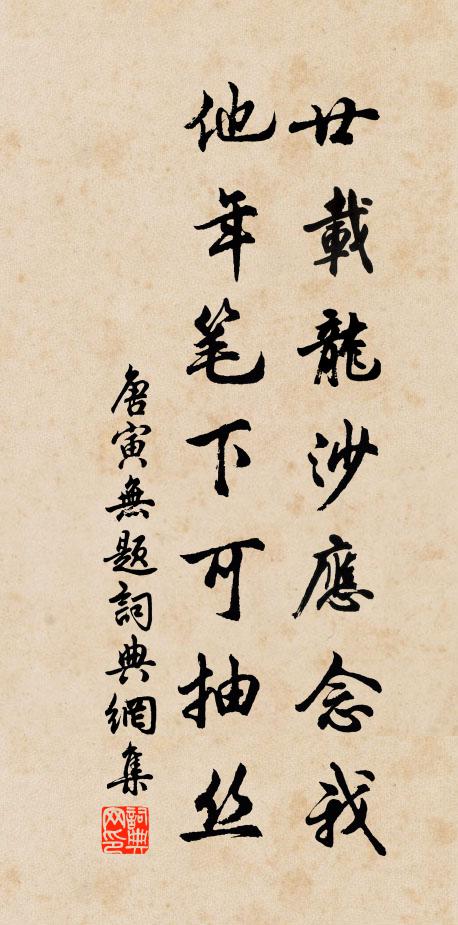 廿載龍沙應念我
他年笔下可抽丝
唐寅無题詞典網集
詞典网印